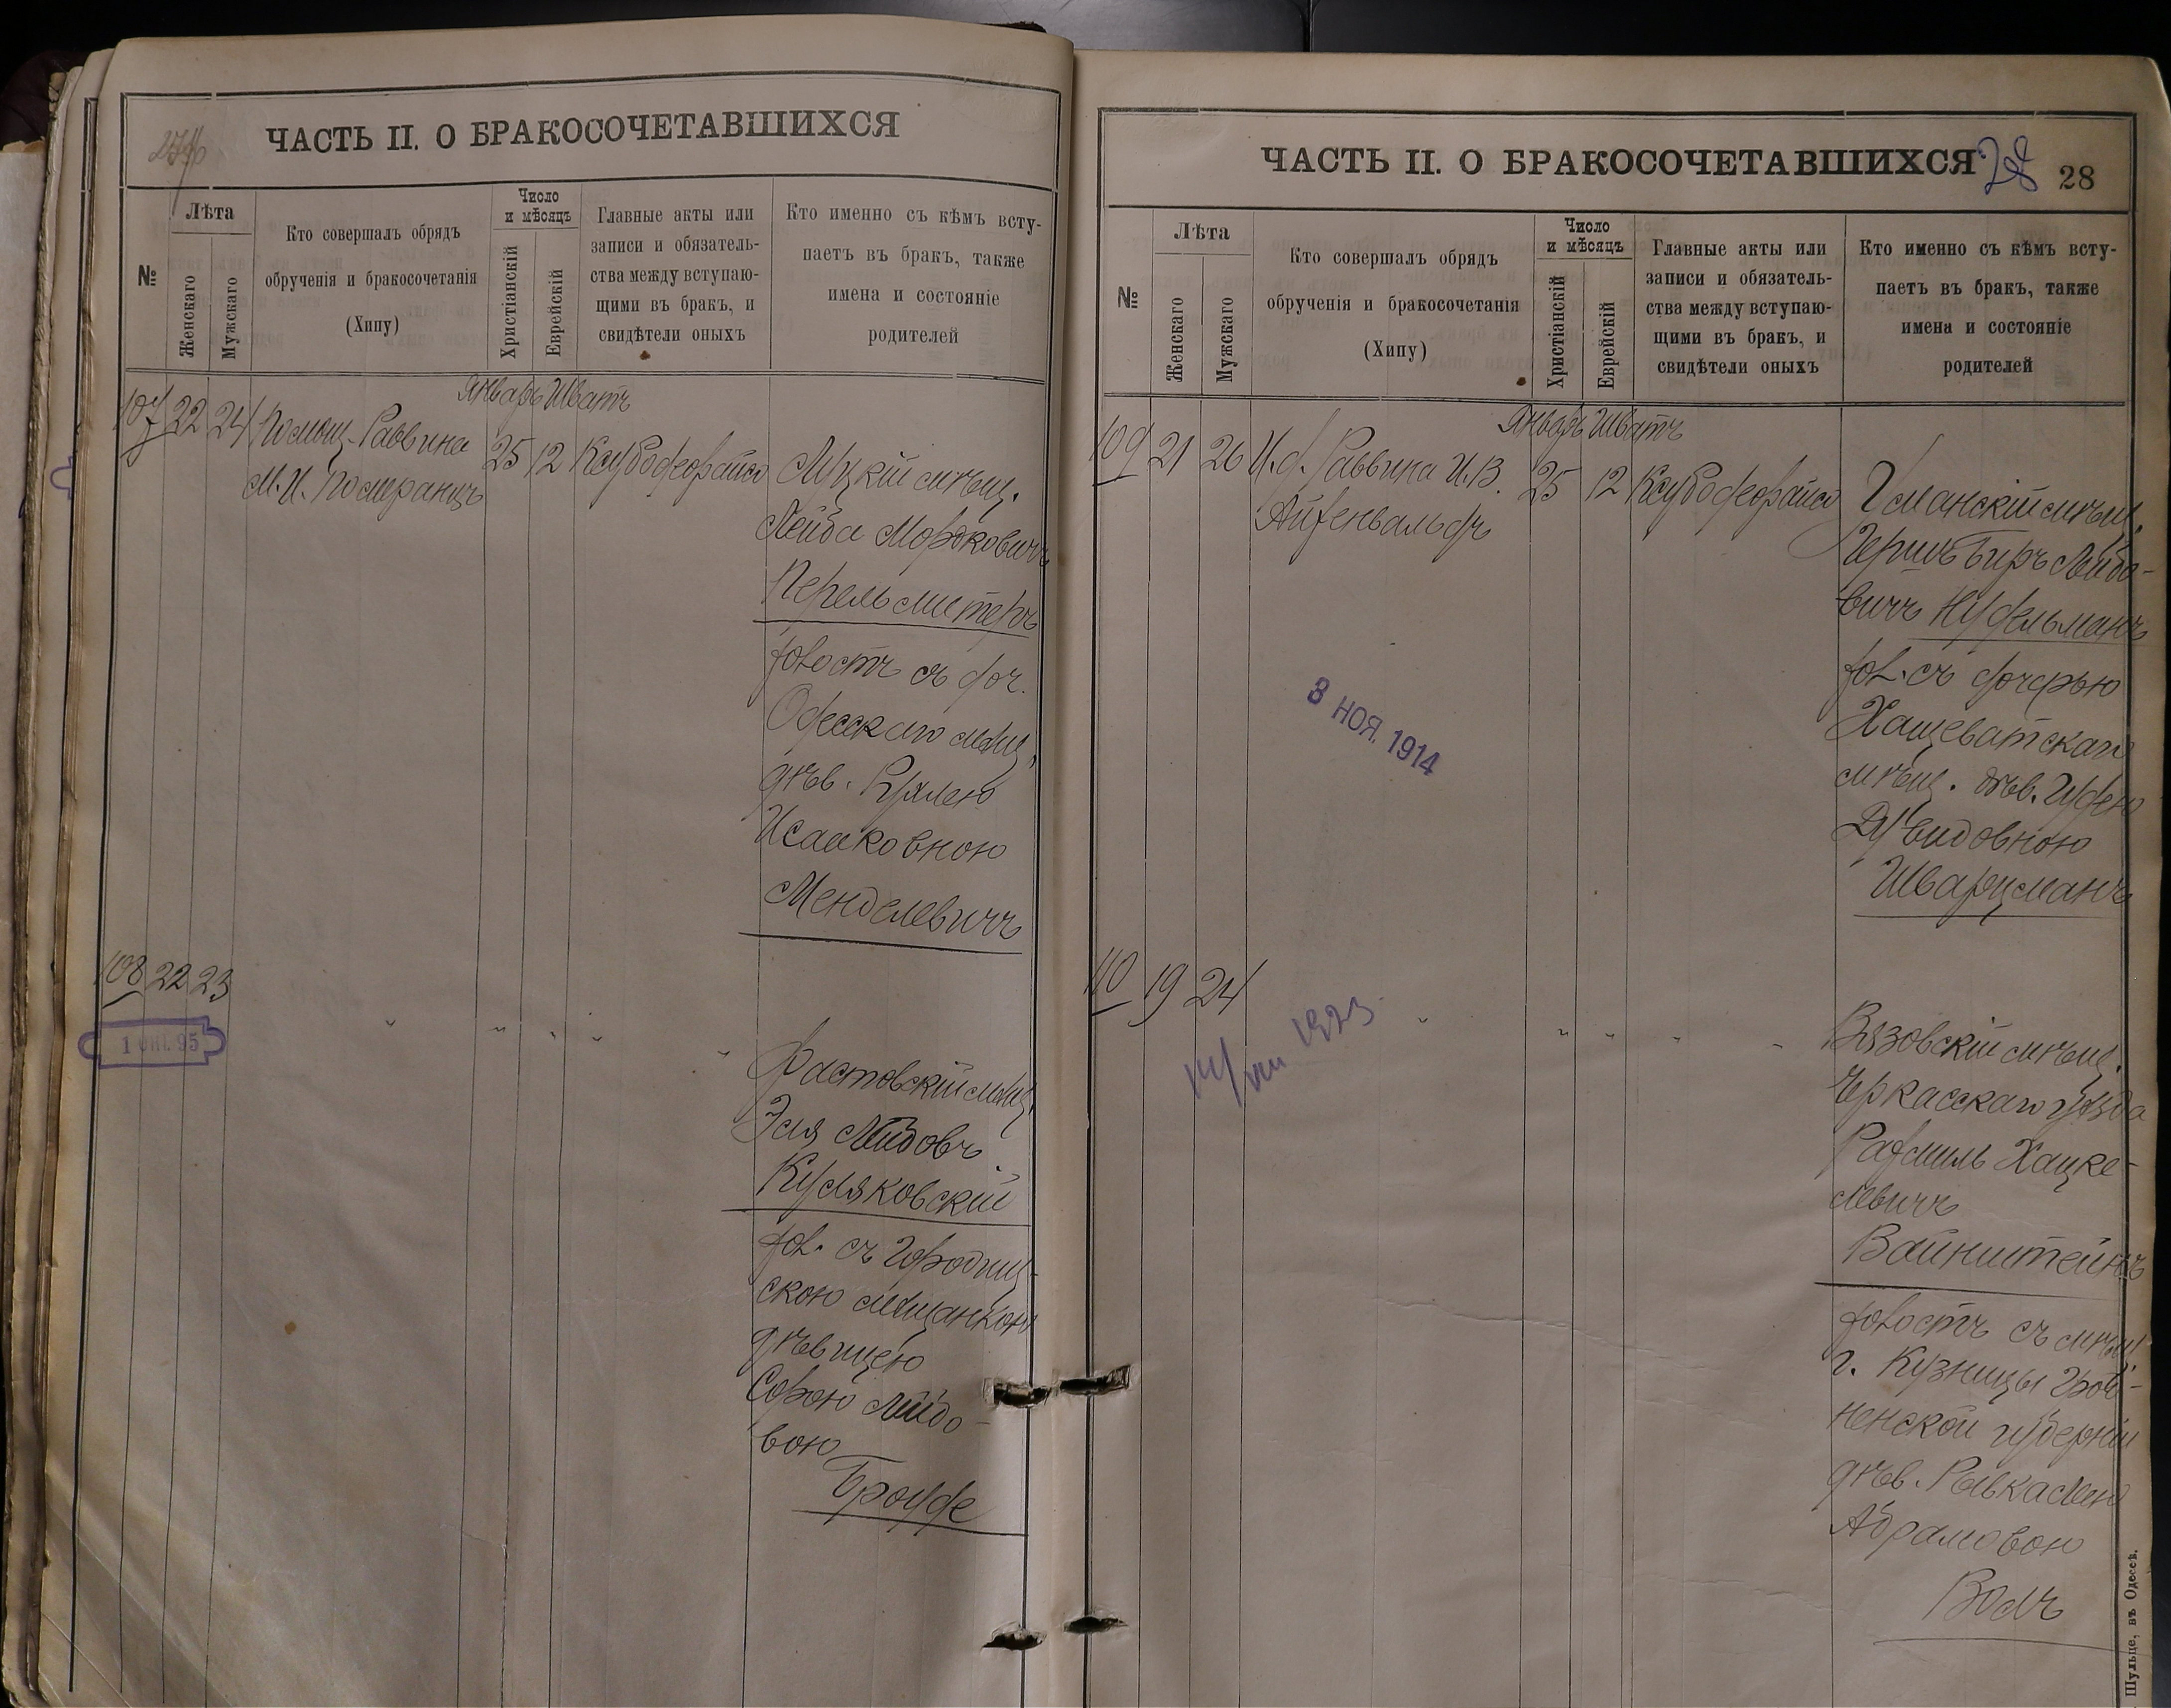 ЧАСТЬ II. О БРАКОСОЧЕТАВШИХСЯ
№
Лѣта
Женскаго
Мужскаго
Кто совершалъ обрядъ
обрученія и бракосочетанія
(Хипу)
Число
и мѣсяцъ
Христіанскій
Еврейскій
Главные акты или
записи и обязатель-
ства между вступаю-
щими въ бракъ, и
свидѣтели оныхъ
Кто именно съ кѣмъ всту-
паетъ въ бракъ, также
имена и состояніе
родителей
Январь Шватъ
107 22 24 Помощ. Раввина 25 12
М. И. Померанцъ
Луцкій мѣщ.
Лейба Мордковичъ
Перельмитеръ
холостъ съ доч.
Одесскаго мѣщ.
дѣв.
Исааковною
Менделевичъ
108 22 23
Фастовскій мѣщ.
Эля Лейбовъ
Куляковскій
хол. съ Городищ-
скою мѣщанкою
дѣвицею
Сорою Лейбо-
вою
Броуде
ЧАСТЬ II. О БРАКОСОЧЕТАВШИХСЯ
28
28
№
Лѣта
Женскаго
Мужскаго
Кто совершалъ обрядъ
обрученія и бракосочетанія
(Хипу)
Число
и мѣсяцъ
Христіанскій
Еврейскій
Главные акты или
записи и обязатель-
ства между вступаю-
щими въ бракъ, и
свидѣтели оныхъ
Кто именно съ кѣмъ всту-
паетъ въ бракъ, также
имена и состояніе
родителей
Январь Шватъ
109 21 26 И. д. Раввина И. В. 25 12
Айзенвальдъ
Уманскій мѣщ.
Гершъ Беръ Лейбо-
вичъ Нудельманъ
хол. съ дочерью
Хащеватскаго
мѣщ. дѣв.
Дувидовною
Шварцманъ
3 НОЯ. 1914
110 19 24
1923
Вязовскій мѣщ.
Черкасскаго уѣзда
Рахмиль Хацке-
левичъ
Вайнштейнъ
холостъ съ мѣщ.
г. Кузницы Грод-
ненской губерніи
дѣв.
Абрамовою
Волъ
Шульце, въ Одессѣ.